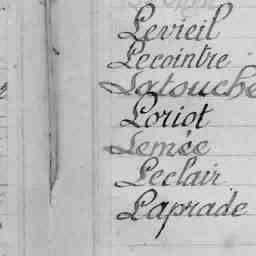 Levieil
Lecointre
Latouche
Loriot
Lemée
Leclair
Laprade